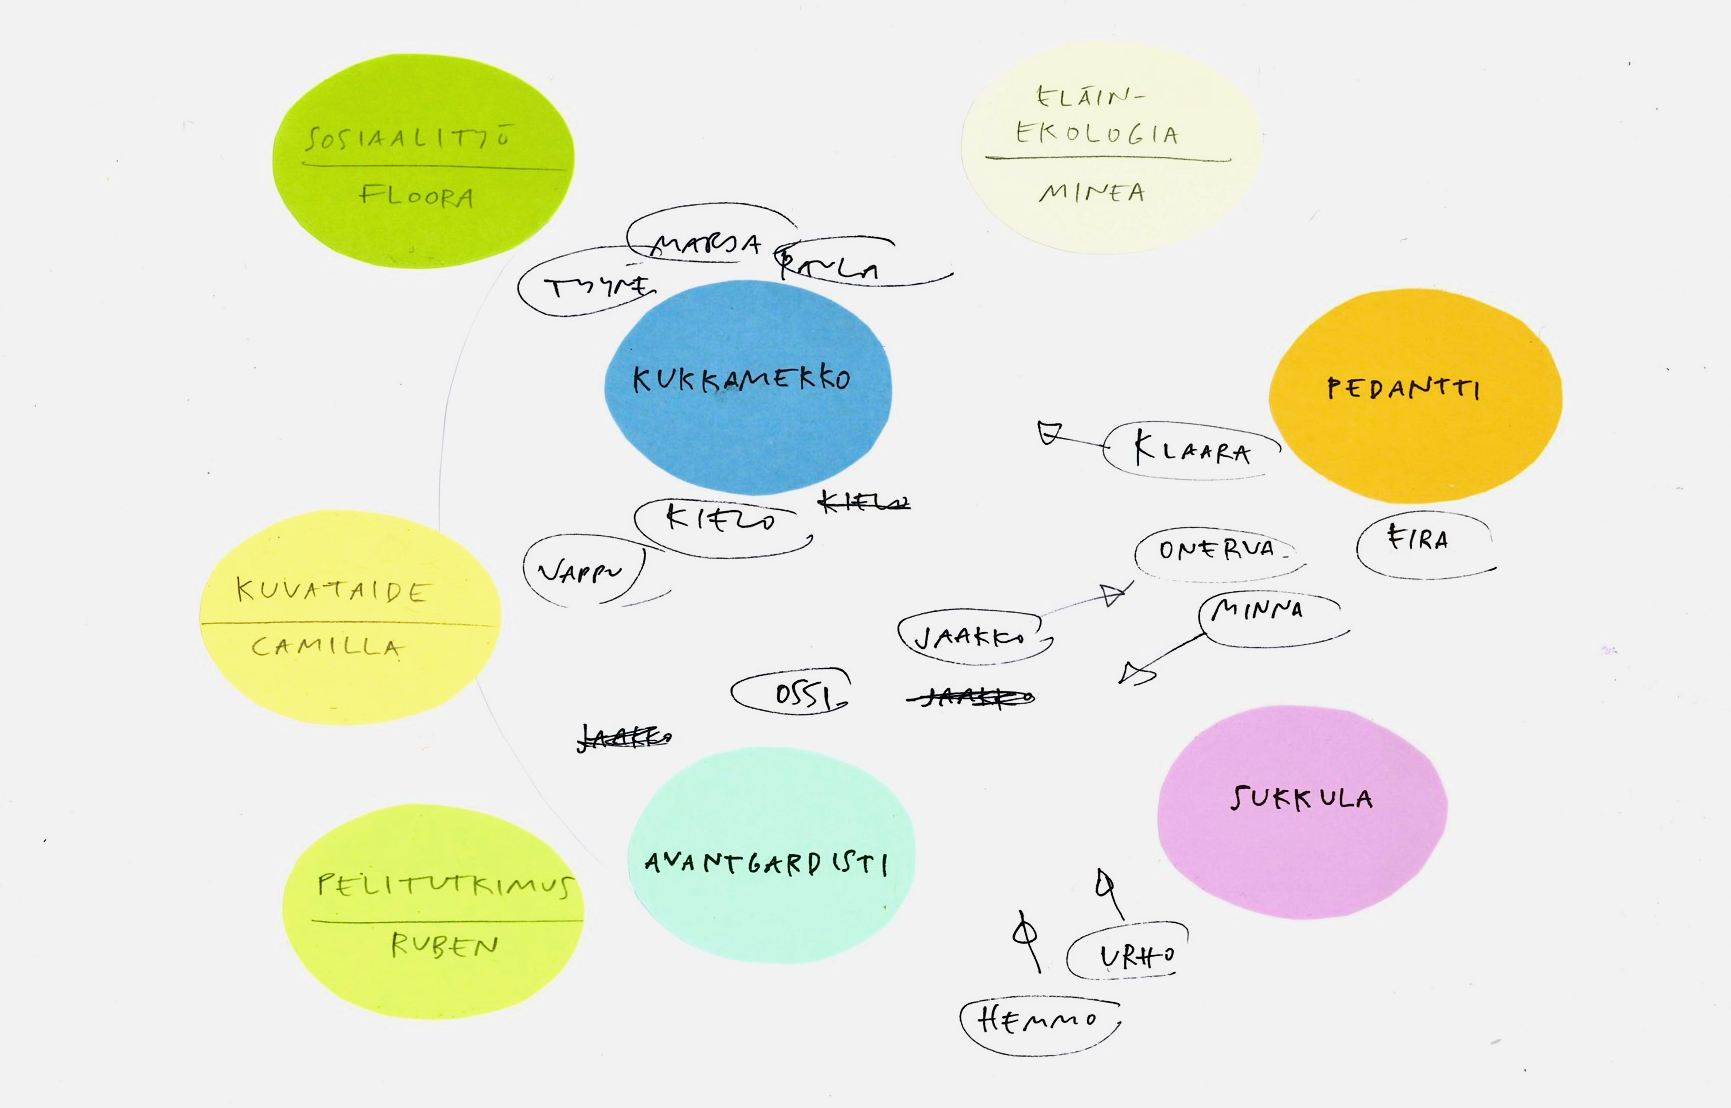 SOSIAALITYÖ
FLOORA
ELÄIN-
EKOLOGIA
MINEA
MARJA
PAULA
TYYNE
KUKKAMEKKO
PEDANTTI
KLAARA
KIELO
KIELO
EIRA
ONERVA
VAPPU
KUVATAIDE
CAMILLA
MINNA
JAAKKO
OSSI
JAAKKO
JAAKKO
SUKKULA
AVANTGARDISTI
PELITUTKIMUS
RUBEN
URHO
HEMMO